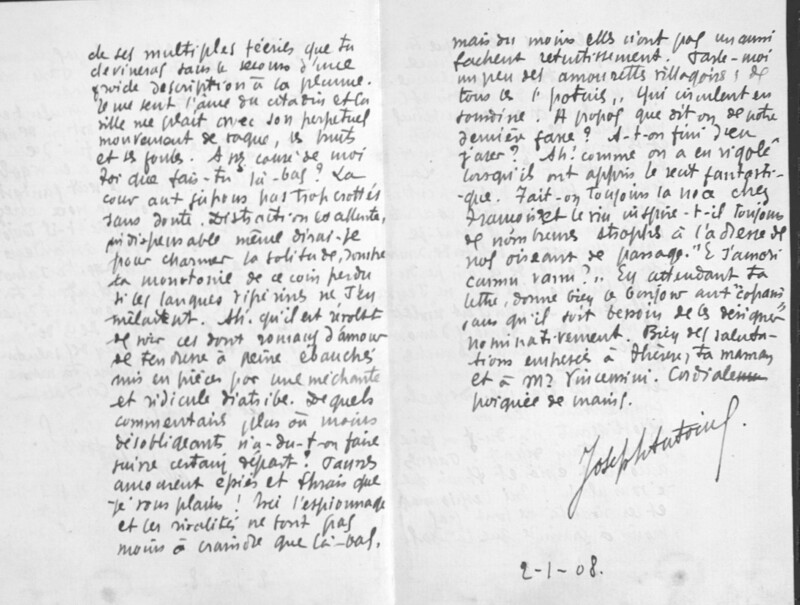 de ses multiples féeries que tu
devineras sans le secours d'une
froide description à la plume.
Je me sens l'âme du citadin et la
ville me plaît avec son perpétuel
mouvement de vague, ses bruits
et ses foules. Assez causé de moi
toi que fais-tu là-bas? La
cour aux jupons pas trop crottés
sans doute. Distraction excellente,
indispensable même dirai-je
pour charmer la solitude,
la monotonie de ce coin perdu
si les langues vipérines ne s'en
mêlaient. Ah! qu'il est
de voir ces doux romans d'amour
de tendresse à peine ébauchés
mis en pièces par une méchante
et ridicule diatribe. De quels
commentaires plus ou moins
désobligeants n'a-du-t-on faire
suivre certain départ? Pauvres
amoureux épiés et trahis que
je vous plains! Ici l'espionnage
et les rivalités ne sont pas
moins à craindre que là-bas,
mais du moins elles n'ont pas un aussi
fâcheux retentissement. Parle-moi
un peu des amourettes villageoises; de
tous ces "potins" qui circulent en
sourdine. A propos que dit-on de notre
dernière farce? A-t-on fini d'en
jaser? Ah! comme on a en rigolé
lorsqu'ils ont appris le saut fantasti-
que. Fait-on toujours la noce chez
et le vin inspire-t-il toujours
de nombreuses strophes à l'adresse de
nos oiseaux de passage. "E s'amori
"? En attendant ta
lettre, donne bien le bonjour aux "copains"
sans qu'il soit besoin de les désigner
nominativement. Bien des saluta-
tions empressées à , ta maman
et à Mr Vincentini. Cordiale
poignée de mains.
Joseph Antoine
2-1-08.